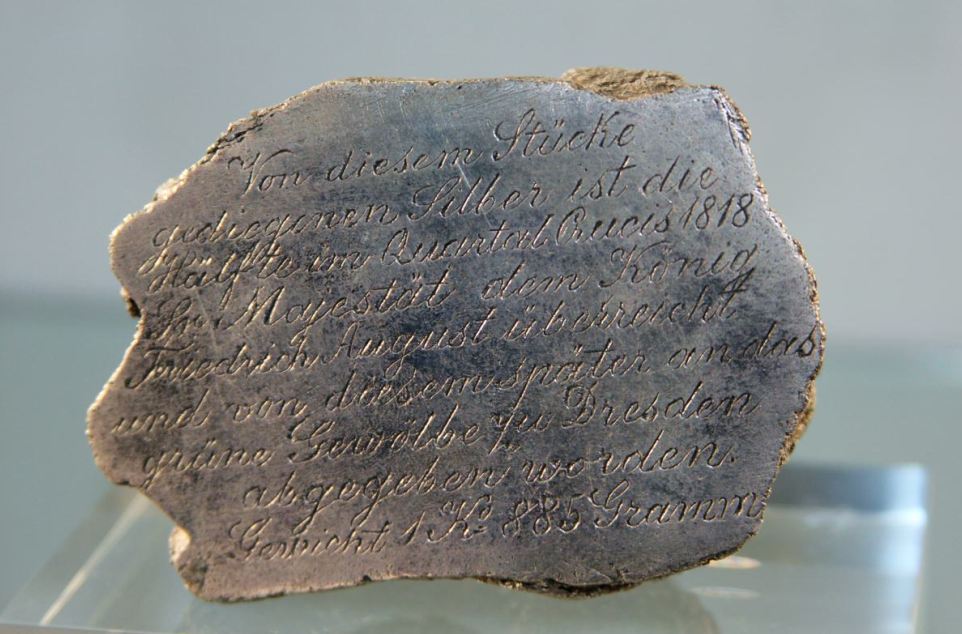 Von diesem Stücke
gediegenen Silber ist die
Hälfte im Quartal Crucis 1818
Sr. Majestät dem König
Friedrich August überreicht
und von diesem später an das
grüne Gewölbe zu Dresden
abgegeben worden.
Gewicht 1 K. 885 Gramm